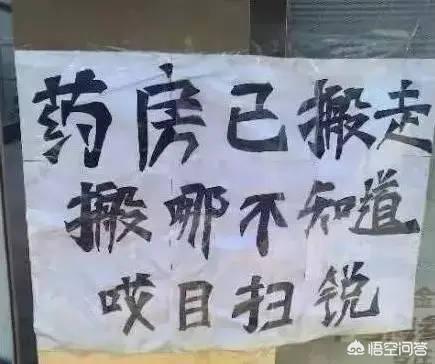 药房已搬走
搬哪不知道
哎目扫锐
金
悟空问答